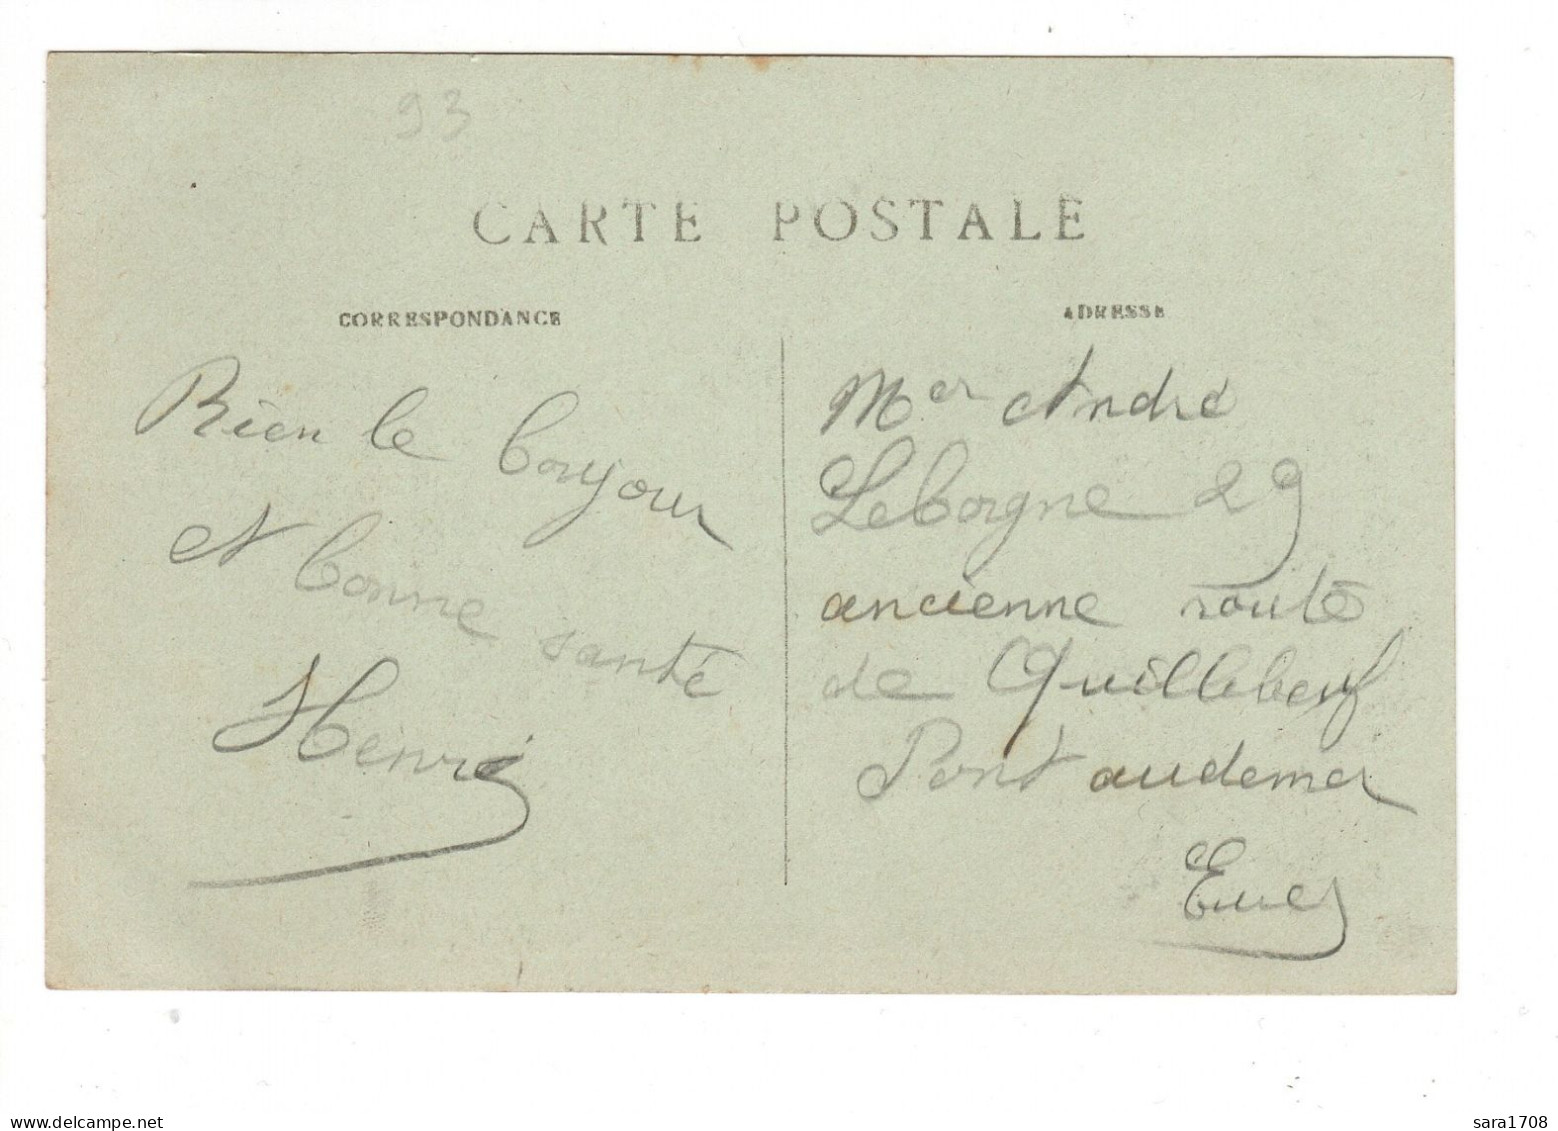 93
CARTE POSTALE
CORRESPONDANCE
Bien le bonjour
et bonne santé
Henri
ADRESSE
Mer André
Leborgne 29
ancienne route
de Quillebeuf
Pont audemer
Eure
www.delcampe.net
sara1708